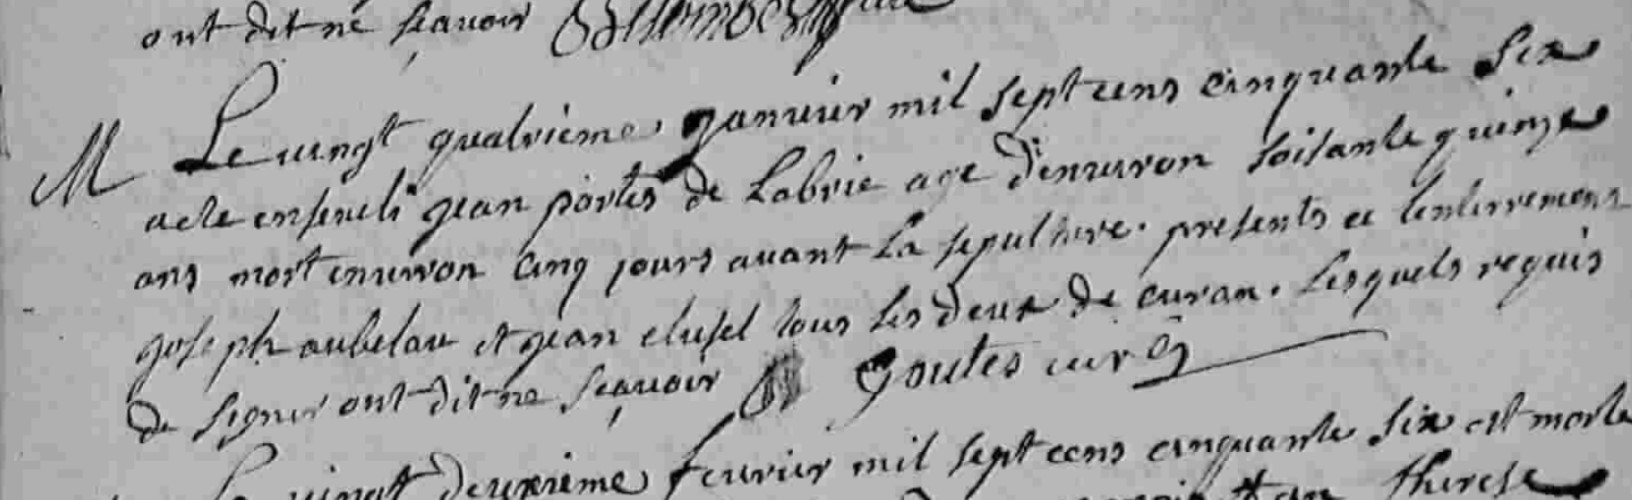 ont dit ne sçavoir
M Le vingt quatrieme janvier mil sept cens cinquante six
a ete enseveli jean portes de Labrie age d'environ soisante quinze
ans mort environ cinq jours avant La sepulture. presents a lenterrement
joseph aubelau et jean clusel tous les deux de curan. lesquels requis
de signer ont dit ne sçavoir Goutes curé
Le vingt deuxieme fevrier mil sept cens cinquante six est morte
therese